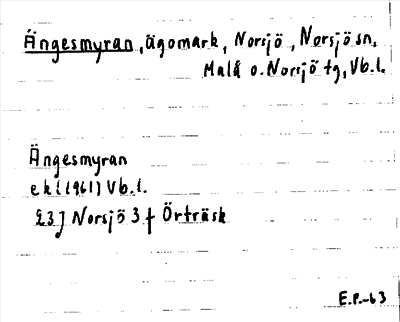 Ängesmyran, ägomark, Norsjö, Norsjö sn,
Malå o. Norsjö tg, Vb.l.
Ängesmyran
ek (1961) Vb.l.
23J Norsjö 3 f Örträsk
E.P.-63